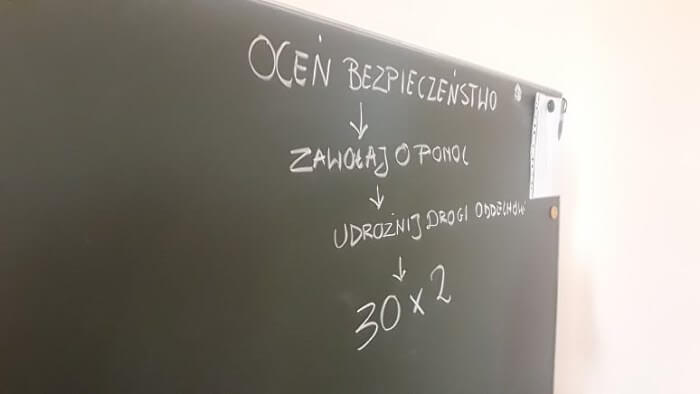 OCEŃ BEZPIECZEŃSTWO
↓
ZAWOŁAJ O POMOC
↓
UDROŻNIJ DROGI ODDECHOWE
↓
30 x 2